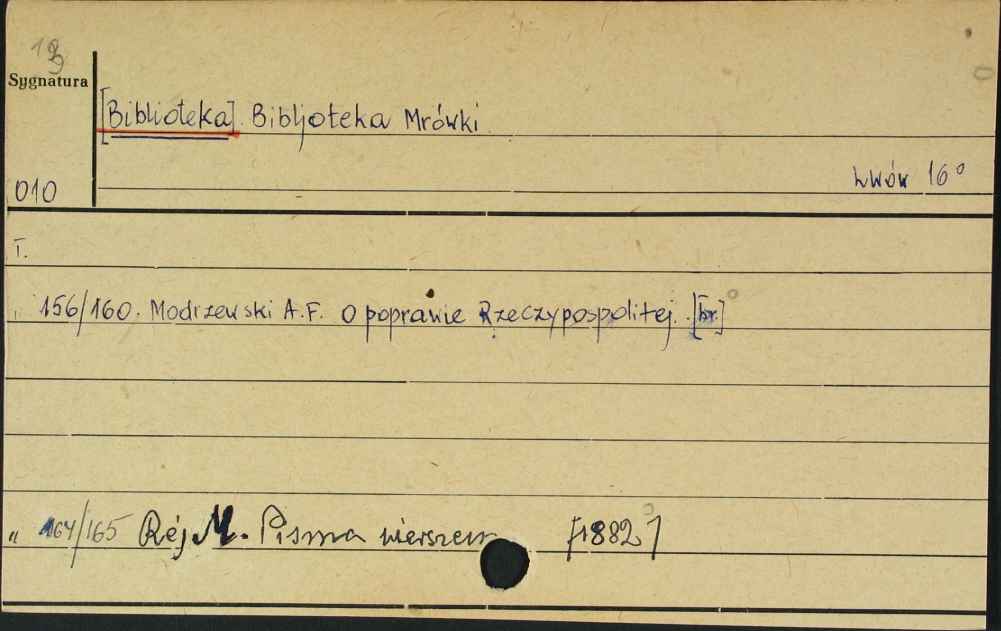 19
9
Sygnatura
[Biblioteka]. Bibljoteka Mrówki
Lwów 16°
010
T.
" 156/160. Modrzewski A.F. O poprawie Rzeczypospolitej. [br.]
" 164/165 Rej M. Pisma wierszem [1882]